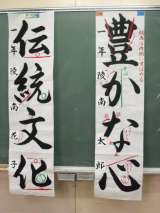 豊かな心
一年 陵南 太郎
伝統文化
一年 陵南 花子